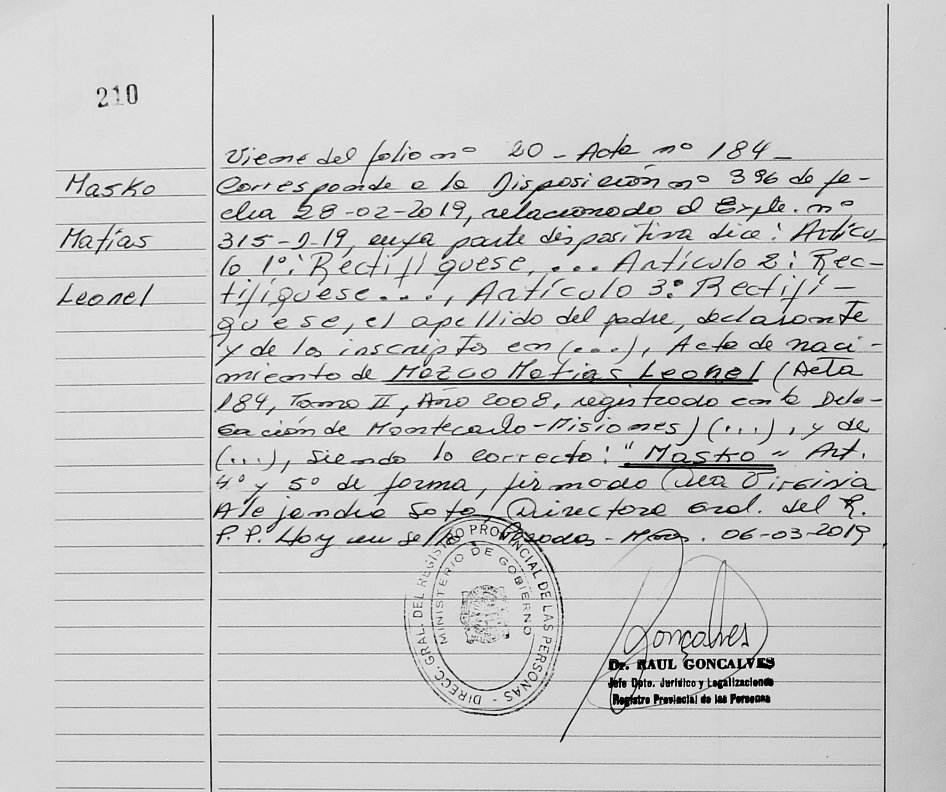 210
Masko
Matías
Leonel
Viene del folio nº 20 - Acta nº 184 -
Corresponde a la Disposición nº 396 de fe-
cha 28-02-2019, relacionado al Expte. nº
315-D-19, cuya parte dispositiva dice: Artícu-
lo 1º: Rectifíquese, ... Artículo 2: Rec-
tifíquese..., Artículo 3º Rectifí-
quese, el apellido del padre, declarante
y de los inscriptos en (...), Acta de naci-
miento de Mazco Matías Leonel (Acta
184, Tomo II, Año 2008, registrado en la Dele-
gación de Montecarlo-Misiones) (...), y de
(...), siendo lo correcto: "Masko" Art.
4º y 5º de forma, firmado Virginia
Alejandra Soto, Directora Gral. del R.
P.P. Hay un sello. Posadas - Mnes. 06-03-2019
DIRECC. GRAL. DEL REGISTRO PROVINCIAL DE LAS PERSONAS -
MINISTERIO DE GOBIERNO
Gonçalves
Dr. RAUL GONCALVES
Jefe Dpto. Jurídico y Legalizaciones
Registro Provincial de las Personas